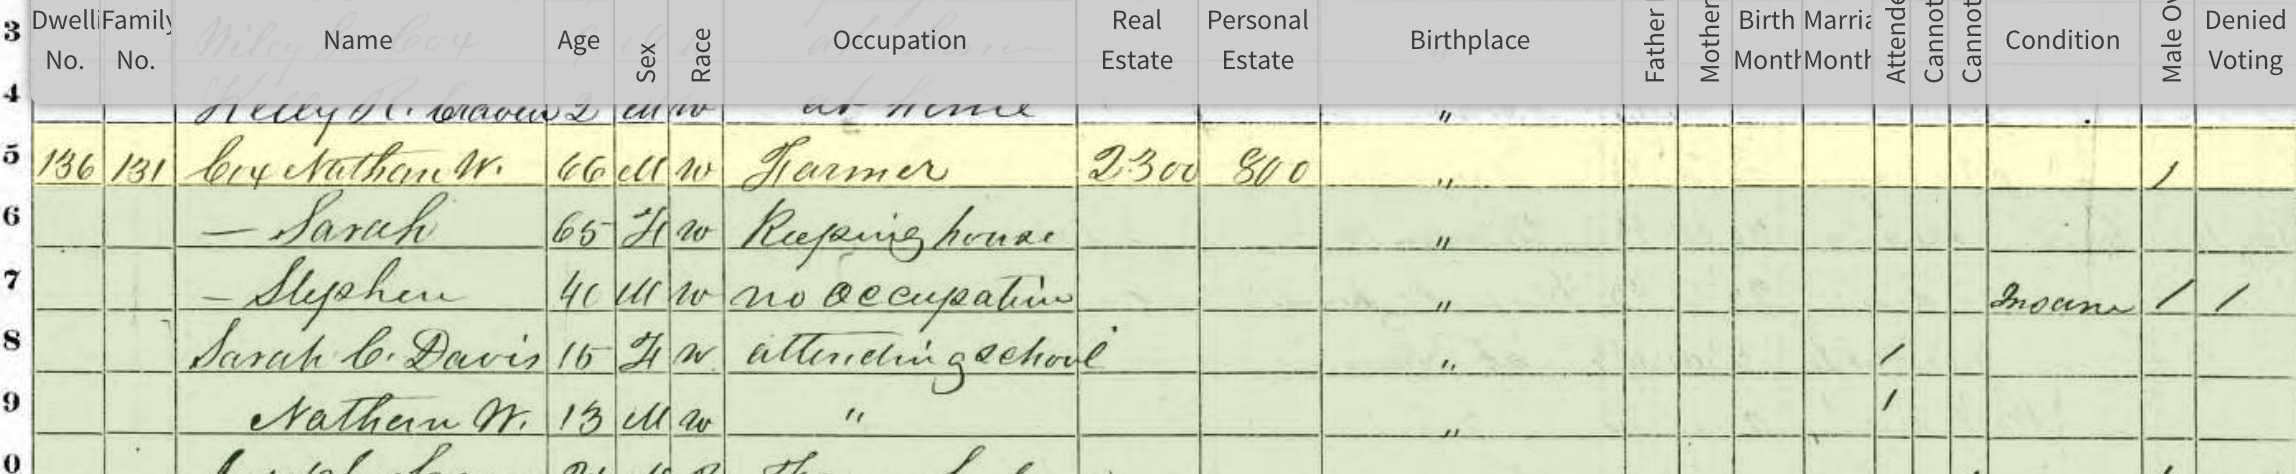 Dwelli No. Family No. Name Age Sex Race Occupation Real Estate Personal Estate Birthplace Father Mother Birth Month Marria Month Attende Cannot Cannot Condition Male Ov Denied Voting
3 Wiley Cox
4 Kelly R. Craven 2 M w at home "
5 136 131 Cox Nathan W. 66 M w Farmer 2300 800 " /
6 — Sarah 65 F w Keeping house "
7 — Stephen 41 M w no occupation " Insane / /
8 Sarah C. Davis 15 F w attending school " /
9 Nathan W. 13 M w " " /
0